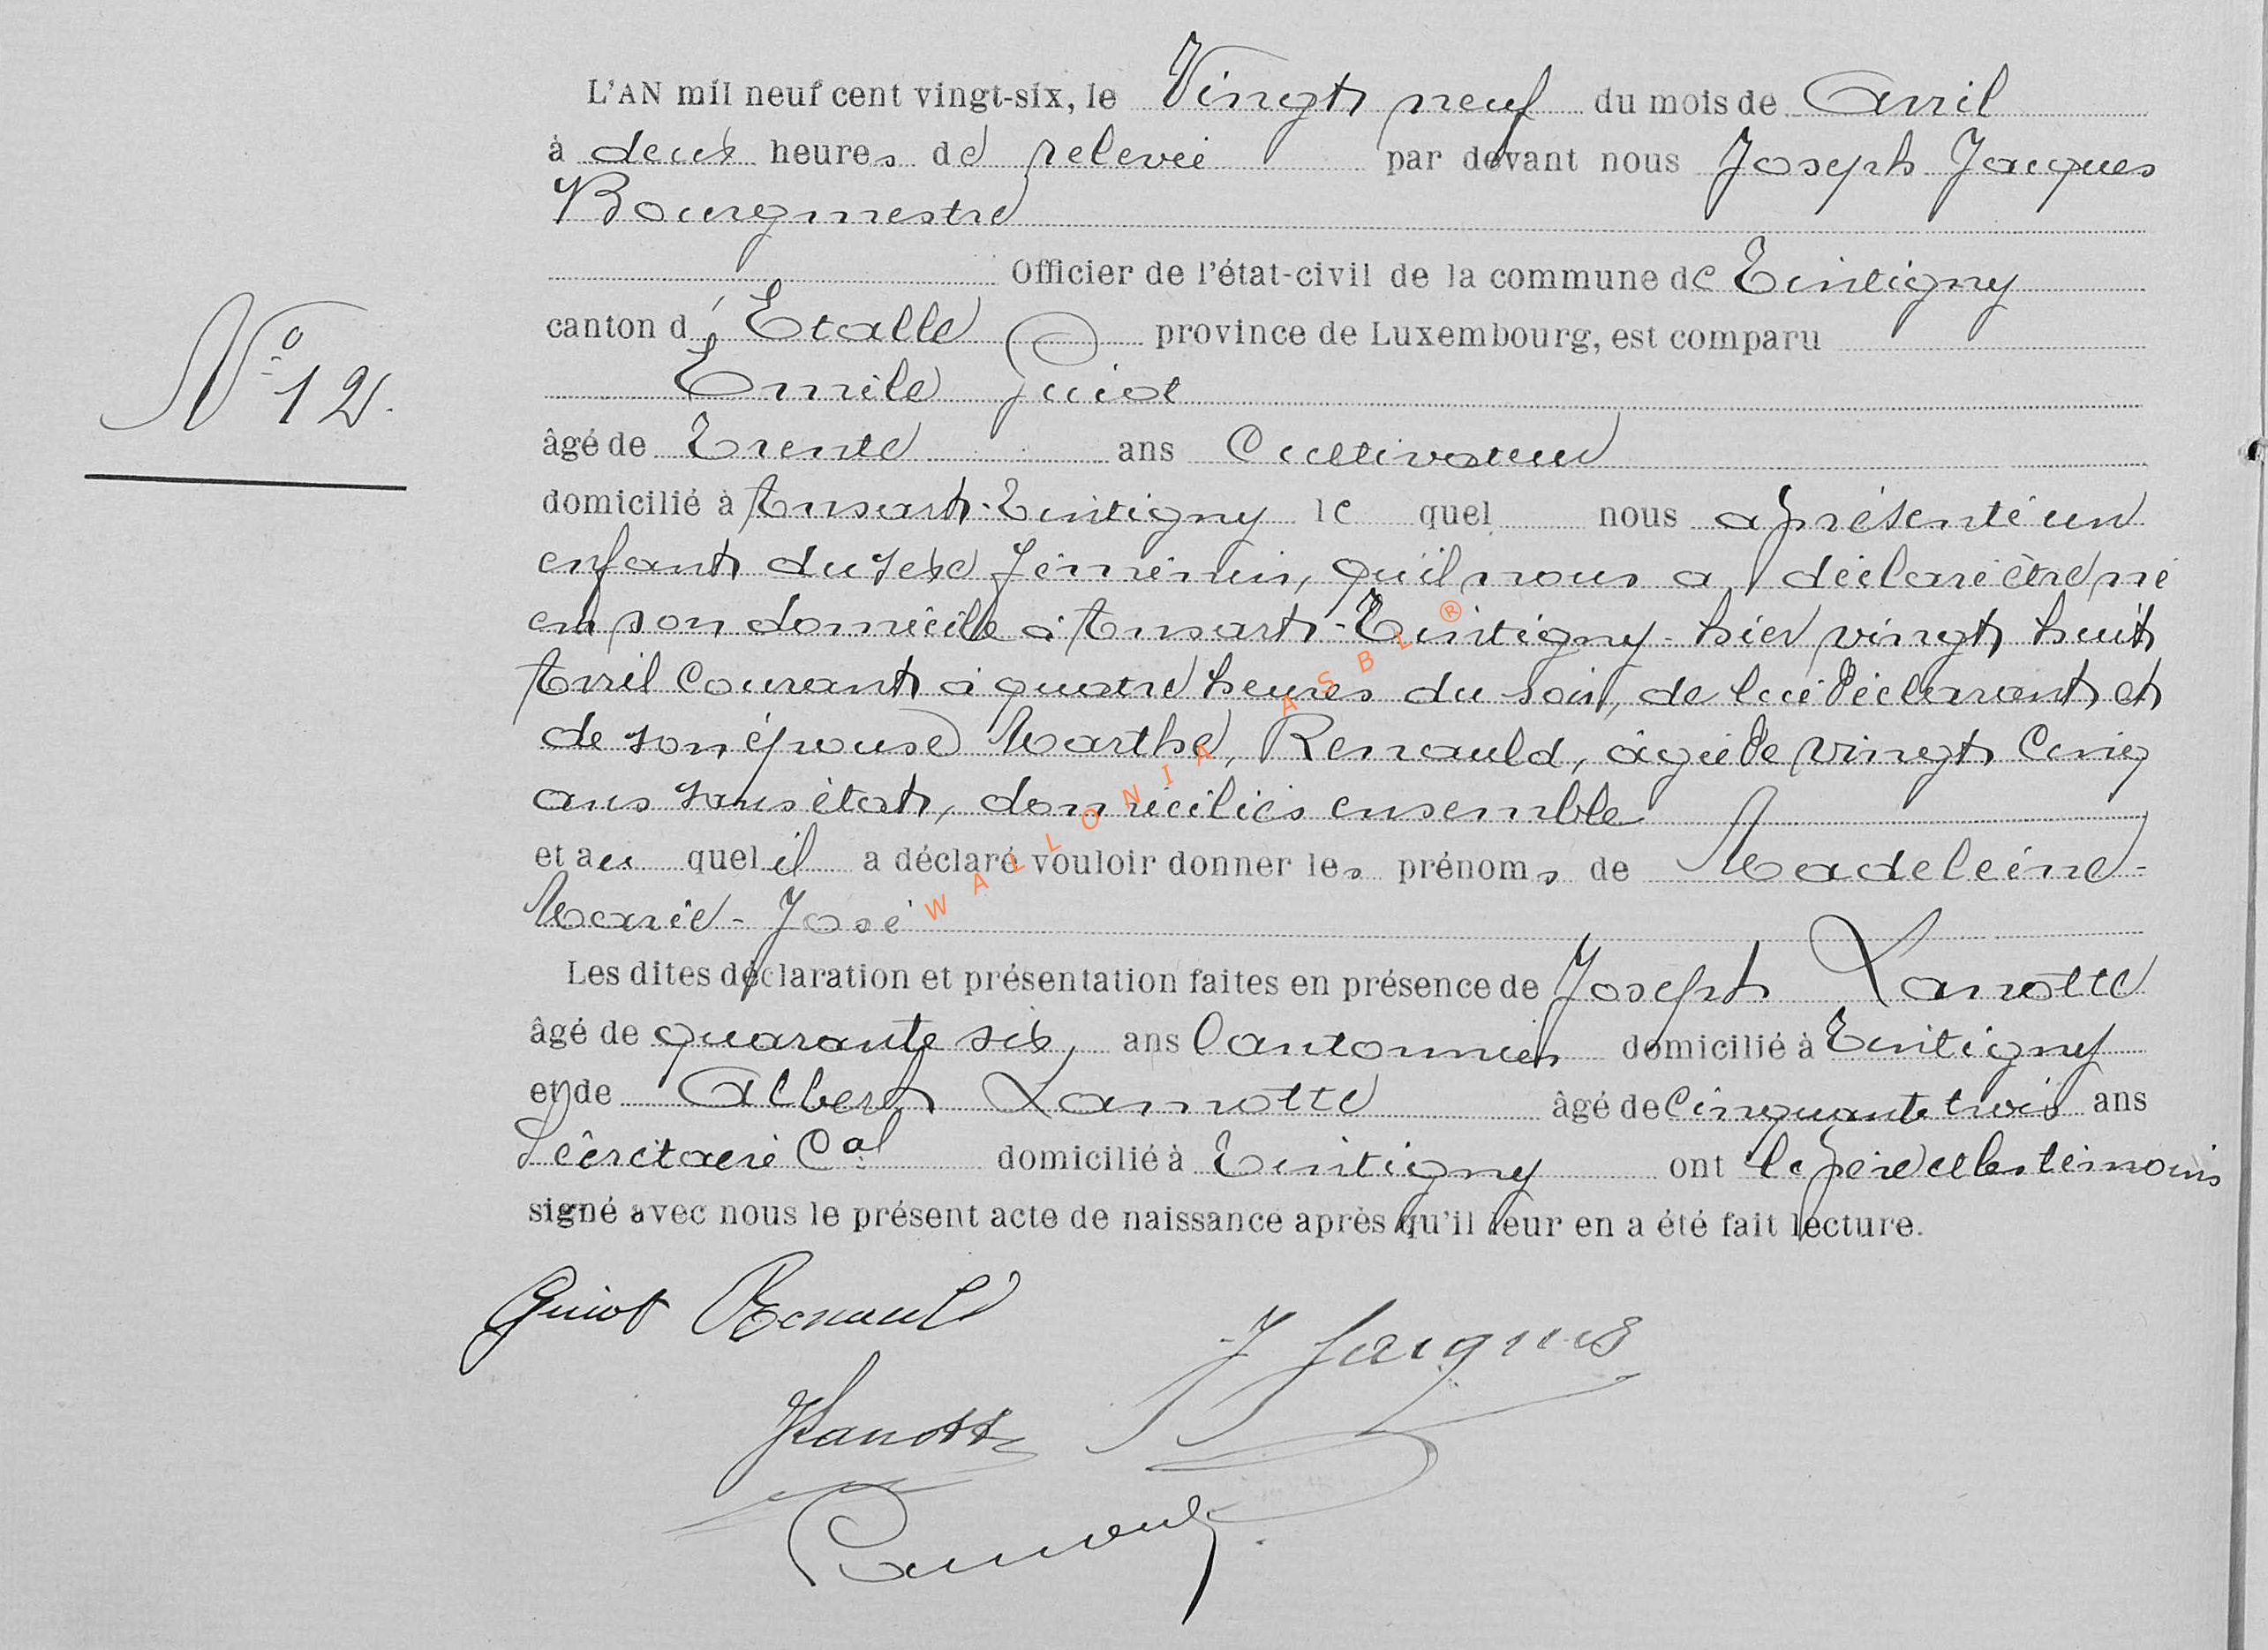 L'AN mil neuf cent vingt-six, le Vingt neuf du mois de Avril
à deux heures de relevée par devant nous Joseph Jacques
Bourgmestre
Officier de l'état-civil de la commune de Tintigny
canton d'Etalle province de Luxembourg, est comparu
Emile Guiot
N° 12.
âgé de Trente ans Cultivateur
domicilié à Ansart-Tintigny le quel nous a présenté un
enfant du sexe féminin, qu'il nous a déclaré être né
en son domicile à Ansart-Tintigny - hier vingt huit
Avril Courant à quatre heures du soir, de lui déclarant et
de son épouse Marthe, Renauld, âgée de vingt Cinq
ans sans état, domiciliés ensemble
et au quel il a déclaré vouloir donner les prénoms de Madeleine-
Marie-José
Les dites déclaration et présentation faites en présence de Joseph Lamotte
âgé de quarante six, ans Cantonnier domicilié à Tintigny
et de Albert Lamotte âgé de Cinquante trois ans
Sécrétaire Cal domicilié à Tintigny ont le père et les témoins
signé avec nous le présent acte de naissance après qu'il leur en a été fait lecture.
Guiot Renauld
J Jacques
J Lamotte
WALLONIA ASBL ®